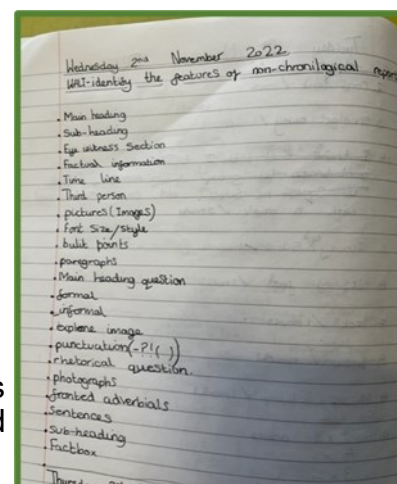 Wednesday 2nd November 2022
WALT-identify the features of non-chronilogical report
. Main heading
. Sub-heading
. Eye witness Section
. Factual information
. Time line
. Third person
. pictures (Images)
. Font Size/Style
. bulit points
. paregraphs
. Main heading question
. formal
. informal
. explane image
. punctuation (-?!( ))
. rhetorical question.
. photographs
. fronted adverbials
. Sentences
. sub-heading
. Factbox
s
d